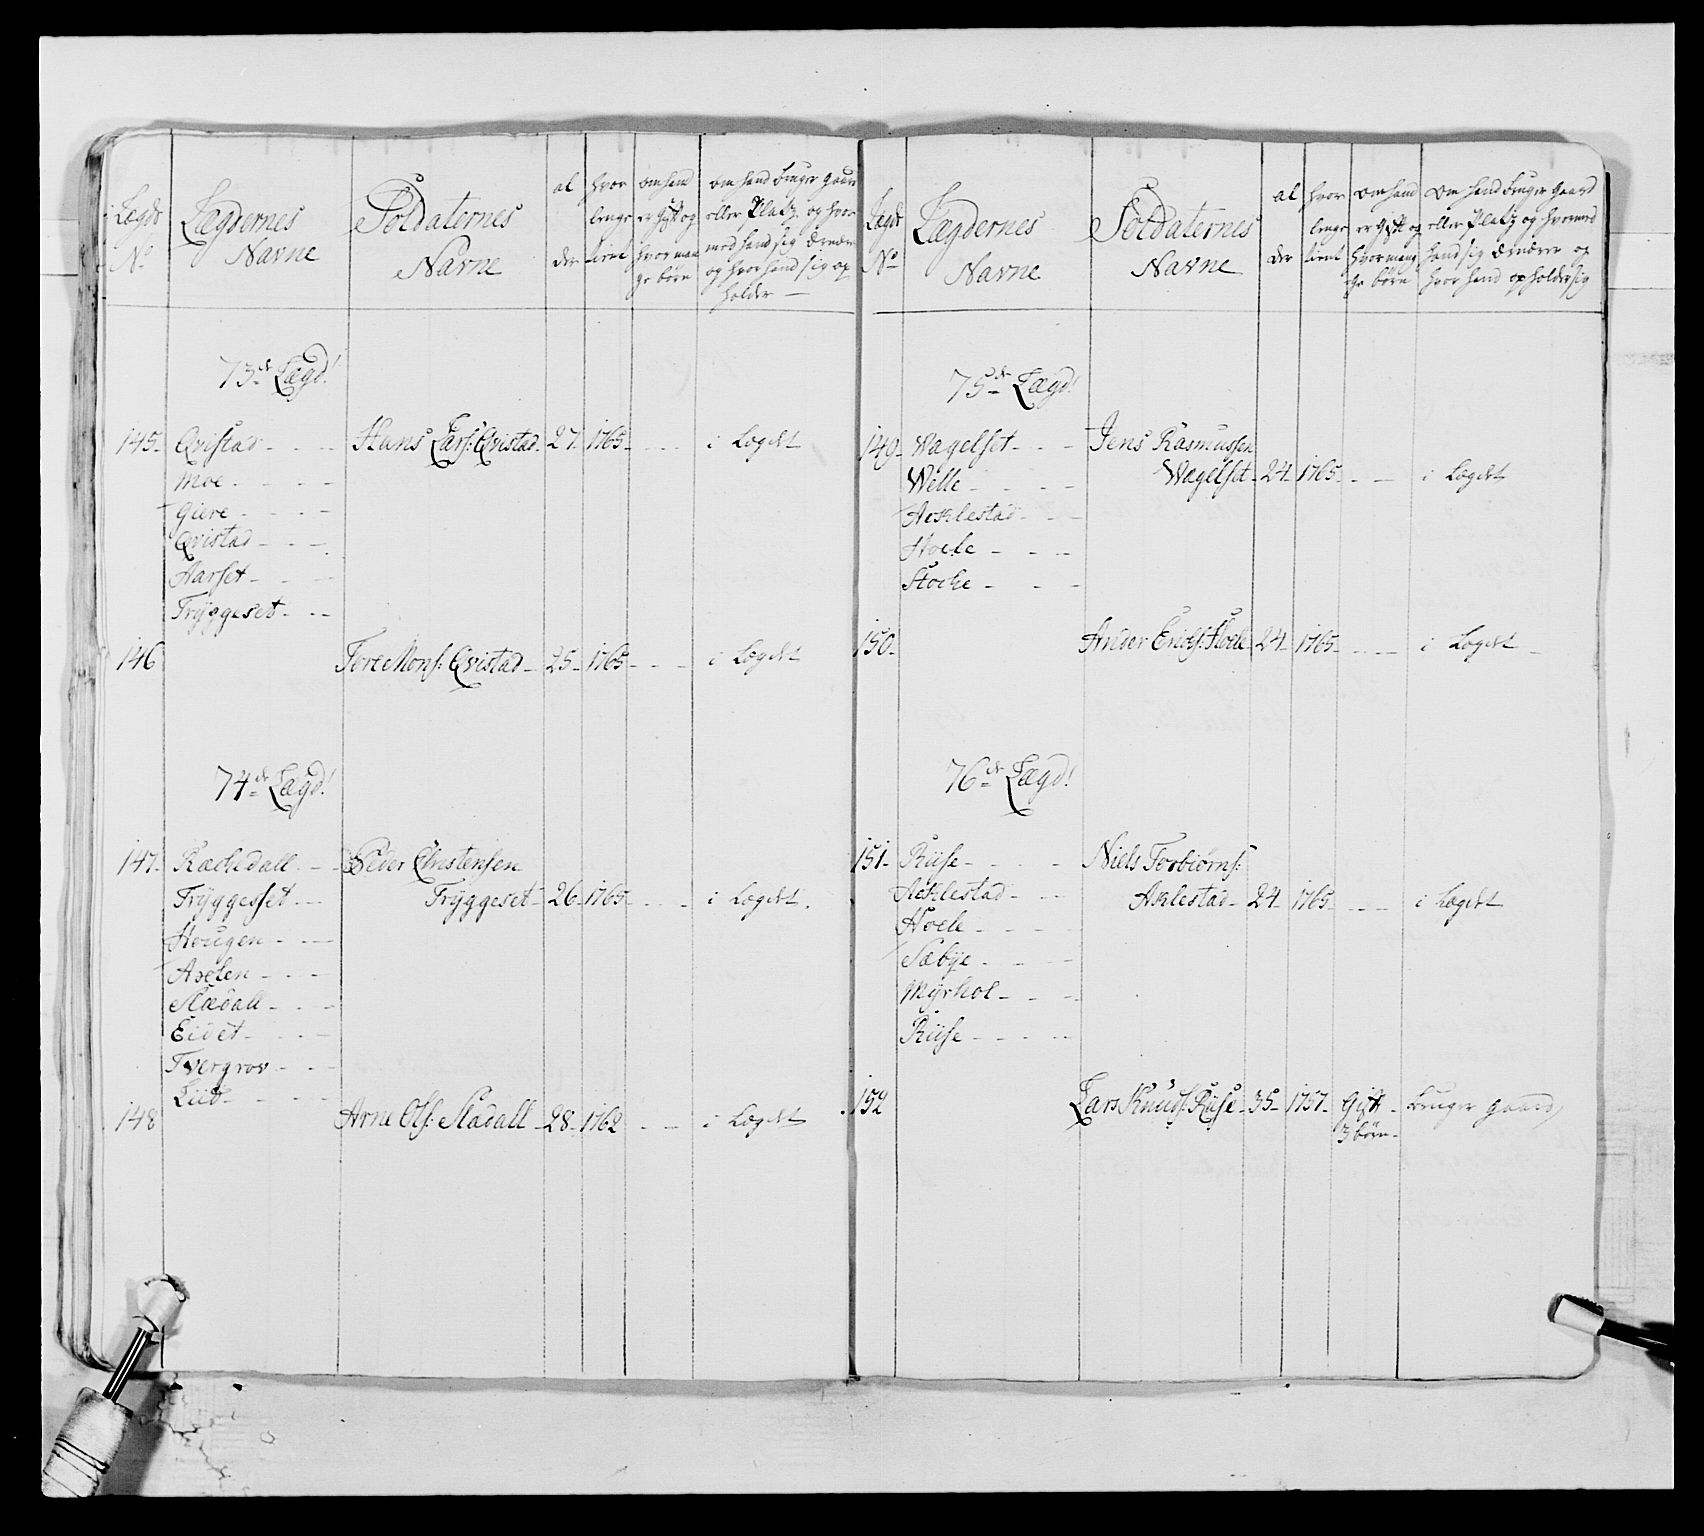 Lægds
No
Lægdernes
Navne
Soldaternes
Navne
al
der
hvor
lenge
tient
om hand
er Gift og
hvor man
ge börn
om hand bruger gaard
eller Platz, og hvor
med hand sig ernærer
og hvor hand sig op
holder
73de Lægd!
145. Qvistad Hans Lars: Qvistad 27. 1765 i Læget
Moe
Giere
Qvistad
Aarset
Tryggeset
146 Tore Mons: Qvistad 25 1765 i Læget
74de Lægd!
147. Rachedall Peder Christensen
Tryggesset Tryggeset 26 1765 i Læget
Hougen
Aselen
Sladall
Eidet
Tvergrov
Liid
148 Arne Ols: Sladall 28 1762 i Læget
Lægds
No
Lægdernes
Navne
Soldaternes
Navne
al
der
hvor
lenge
tient
om hand
er Gift og
hvor mang
ge börn
om hand bruger gaard
eller Platz og hvormed
hand sig ernærer og
hvor hand opholder sig
75de Lægd!
149 Wagelset Jens Rasmussen
Welle Wagelset 24 1765 i Læget
Acklestad
Hoele
Stocke
150 Ander Erichs: Hoele 24 1765 i Læget
76de Lægd!
151 Riise Niels Torbiørns:
Acklestad Aklestad 24 1765 i Læget
Hoele
Sæbye
Myrhol
Riise
152 Lars Knuds: Riise 35 1757 Gift bruger gaard
3 börn